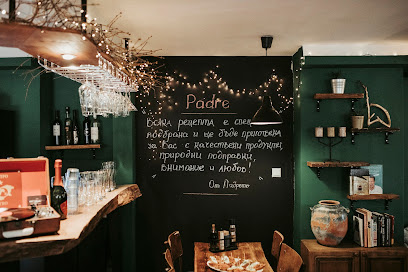 Padre
Всяка рецепта е спец.
подбрана и ще бъде приготвена
за Вас с качествени продукти,
природни подправки,
внимание и любов!
От Падрето